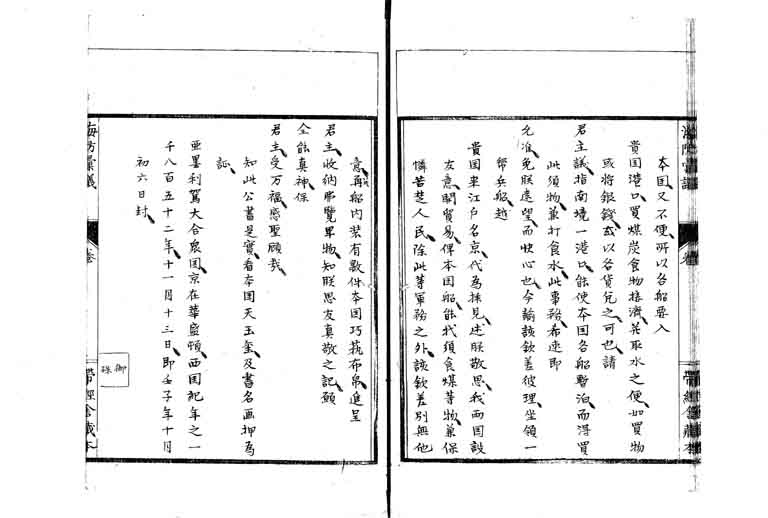 本国又不便所以各船要入
貴国港口買煤炭食物接濟並取水之便如買物
或将銀錢或以各貨兌之可也請
君主議指南境一港口能使本国各船暫泊而得買
此須物兼打食水此事務希速即
允准免朕遠望而快心也今諭該欽差彼理坐領一
幇兵船越
貴国東江戸名京代為採見述朕敬思我両国設
友意開貿易俾本国船能找須食煤等物兼保
憐苦楚人民除此等軍務之外該欽差別無他
海防彙議
巻
帶經舎藏本
意再船内装有數件本国巧藝布帛進呈
君主收納弗覽單物知朕思友真敬之記願
全能真神保
君主受万福應聖顧哉
知此公書是實看本国天玉璽及書名画押為
証
亜墨利駕大合衆国京在華盛頓西国紀年之一
千八百五十二年十一月十三日即壬子年十月
初六日封
御
璽
海防彙議
巻
帶經舎藏本